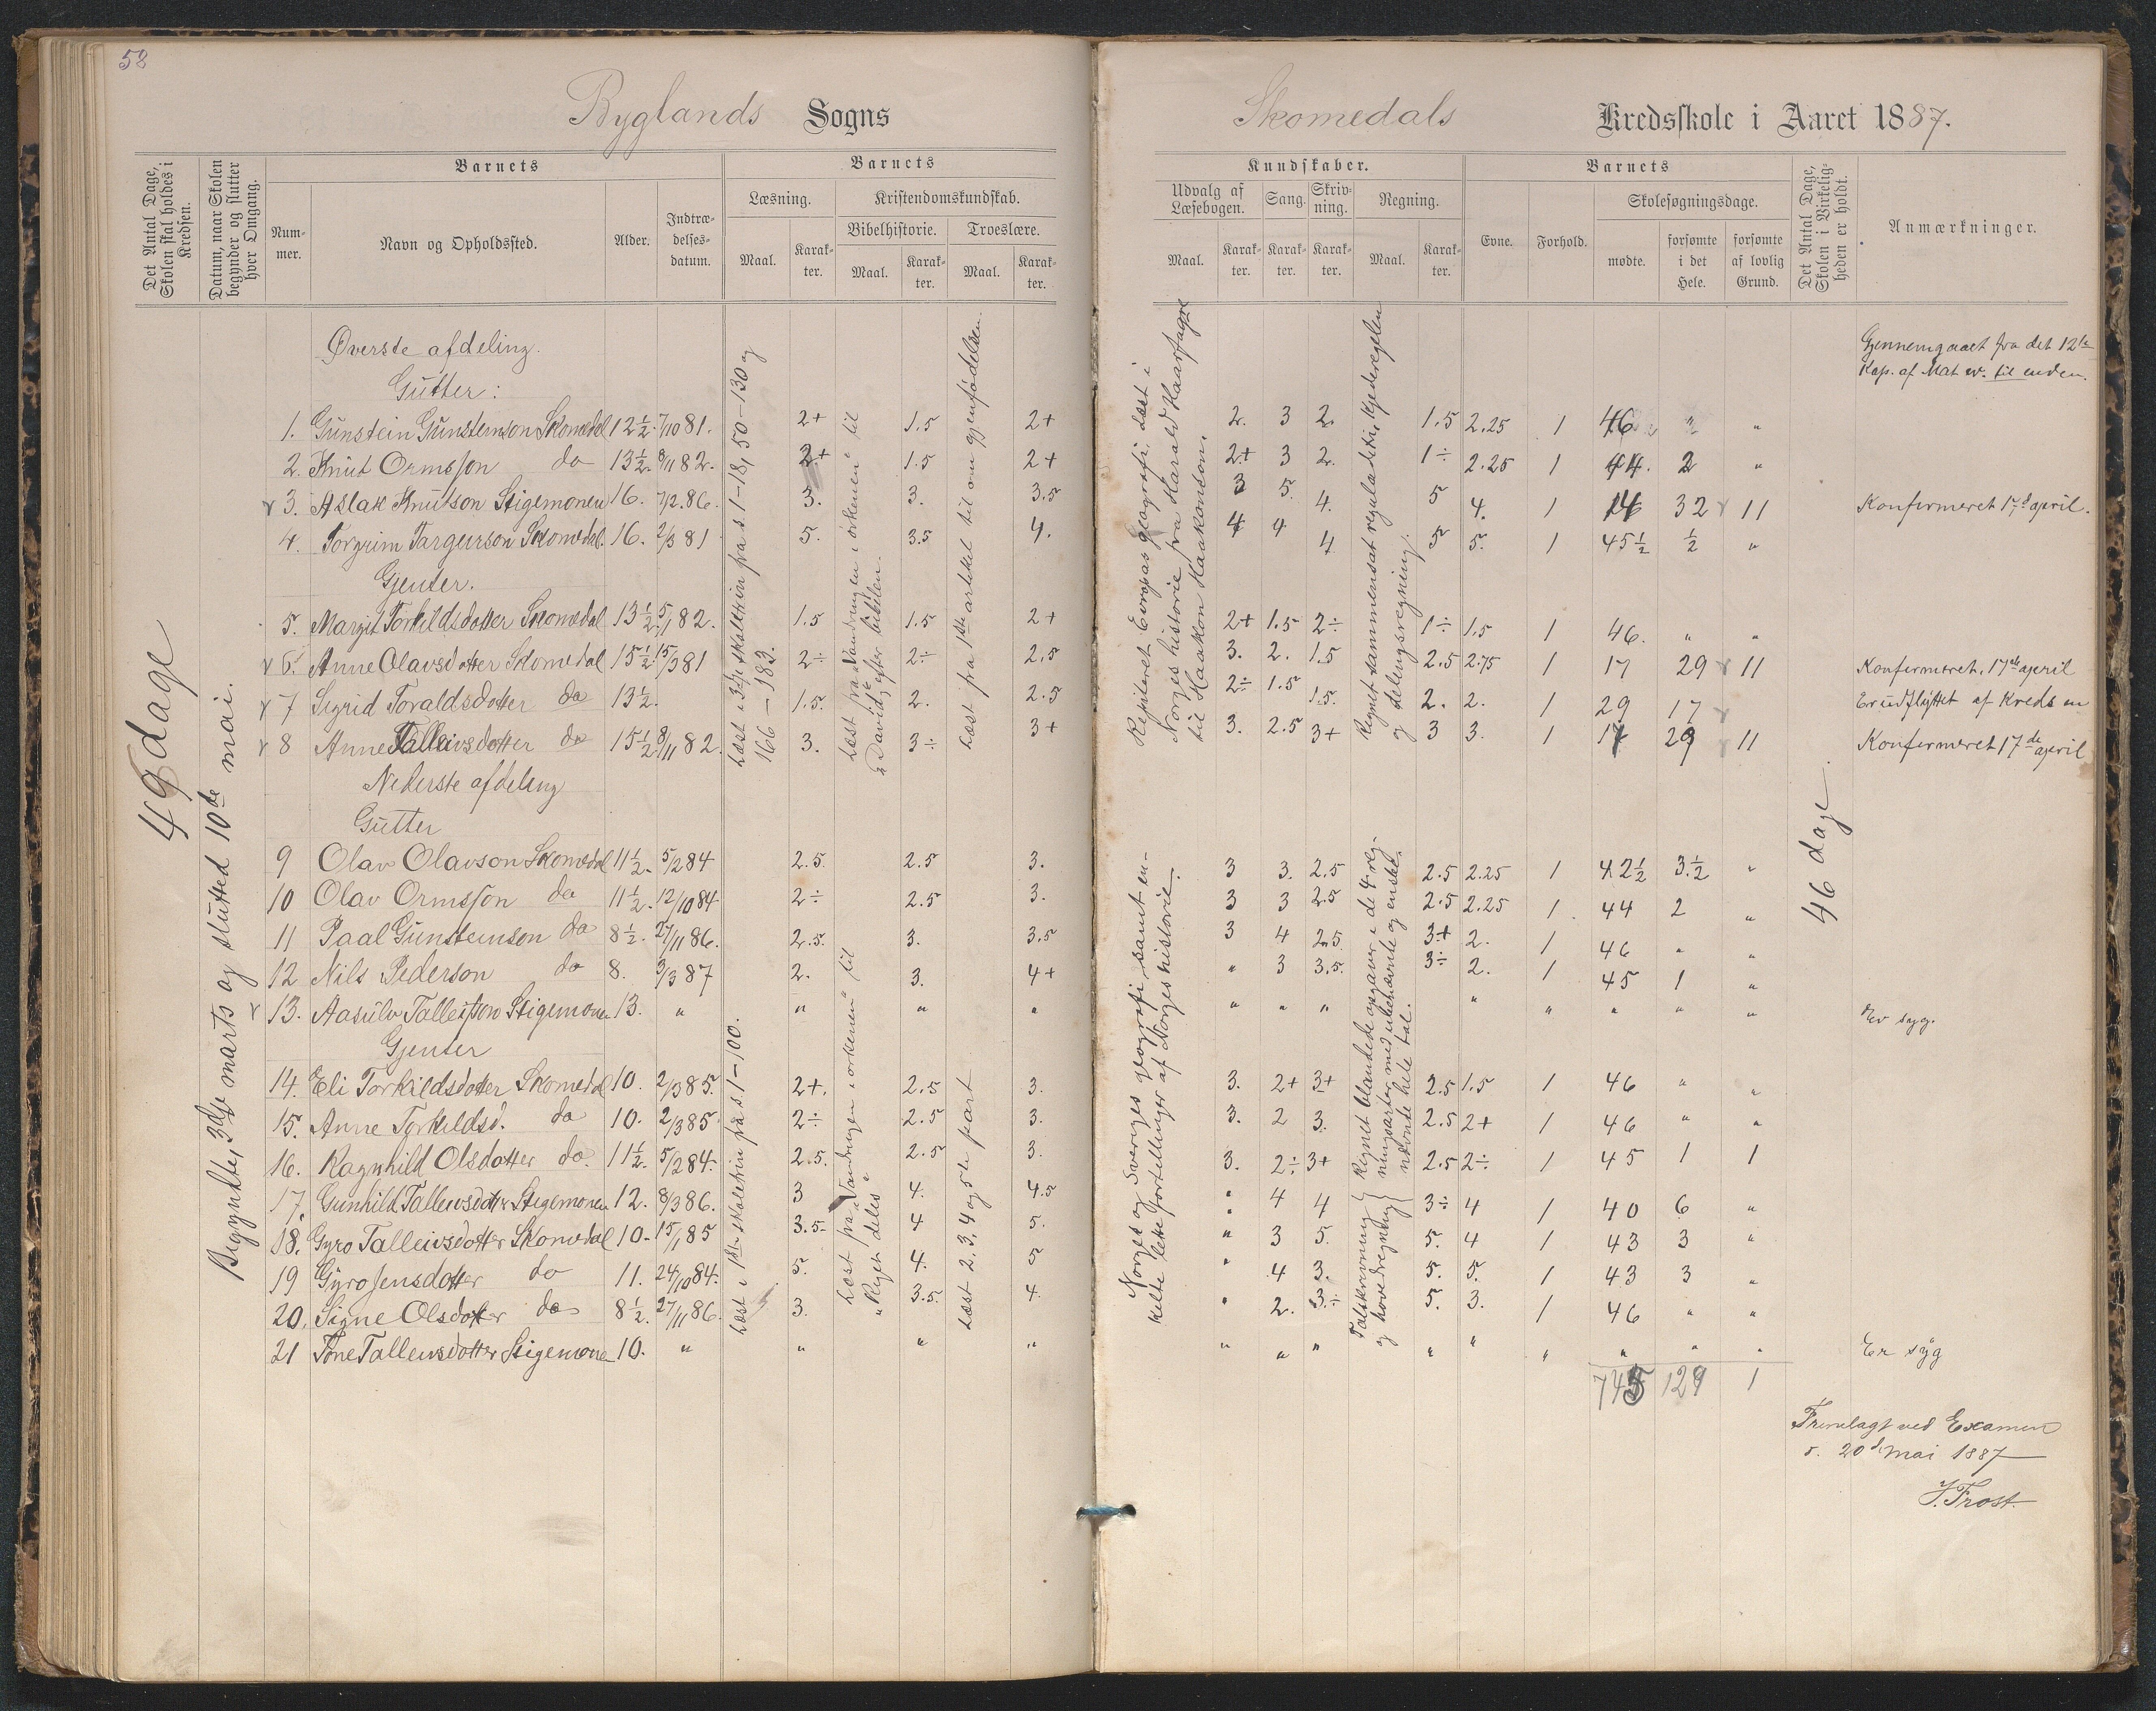 58
Byglands Sogns
Skomedals Kredsskole i Aaret 1887.
Det Antal Dage, Skolen skal holdes i Kredsen.
Datum, naar Skolen begynder og slutter hver Omgang.
Barnets
Num-
mer.
Navn og Opholdssted.
Alder.
Indtræ-
delses-
datum.
Barnets
Læsning.
Maal.
Karak-
ter.
Kristendomskundskab.
Bibelhistorie.
Maal.
Karak-
ter.
Troeslære.
Maal.
Karak-
ter.
Kundskaber.
Udvalg af
Læsebogen.
Maal.
Karak-
ter.
Sang.
Karak-
ter.
Skriv-
ning.
Karak-
ter.
Regning.
Maal.
Karak-
ter.
Barnets
Evne.
Forhold.
Skolesøgningsdage.
mødte.
forsømte
i det
Hele.
forsømte
af lovlig
Grund.
Det Antal Dage, Skolen i Virkelig-
heden er holdt.
Anmærkninger.
49 dage
Begyndte 3die marts og slutted 10de mai.
Øverste afdeling.
Gutter:
Læst i 3die skoletrin fra s. 1-18, 50-130 og
166-183.
Læst fra "Vandringen i ørkenen" til
"David" efter bibelen.
Læst fra 1ste artikel til om gjenfødelsen.
Repeteret Evropas geografi. Læst i
Norges historie fra Harald Haarfagre
til Haakon Haakonson.
Regnet sammensat reguladetri, kjederegelen
og delingsregning.
Gjennemgaaet fra det 12te
Kap. af Mat ev. til enden.
1. Gunstein Gunsteinson Skomedal 12½. 7/10 81. 2+ 1.5 2+ 2. 3 2. 1.5 2.25 1 46 " "
2. Knut Ormsson do 13½. 8/11 82. 2+ 1.5 2+ 2+ 3 2. 1÷ 2.25 1 44. 2 "
3. Aslak Knutson Stigemonen 16. 7/2.86. 3. 3. 3.5 3 5. 4. 5 4. 1 14 32 11 Konfermeret 17d april.
4. Torgrim Targerson Skomedal. 16. 2/3 81 5. 3.5 4. 4 4 4 5 5. 1 45½ ½ "
Gjenter.
5. Margit Torkildsdotter Skomedal 13½ 5/11 82. 1.5 1.5 2+ 2+ 1.5 2÷ 1÷ 1.5 1 46. " "
6. Anne Olavsdotter Skomedal 15½. 15/3 81 2÷ 2÷ 2.5 3. 2. 1.5 2.5 2.75 1 17 29 11 Konfermeret. 17de april
7 Sigrid Toraldsdotter do 13½. 1.5. 2. 2.5 2÷ 1.5 1.5. 2. 2. 1 29 17 Er udflyttet af Kredsen
8 Anne Talleivsdotter do 15½. 8/11 82. 3. 3÷ 3+ 3. 2.5 3+ 3 3. 1 17 29 11 Konfermeret 17de april
Nederste afdeling
Gutter
46 dage.
Læst i 1ste skoletrin fra s. 1-100.
Læst fra "Vandringen i ørkenen" til
"Riget deles"
Læst 2. 3. 4 og 5te part
Norges og Sveriges geografi, samt en-
kelte lette fortellinger af Norges historie.
Regnet blandede opgaver i de 4 reg-
ningsarter med ubenævnte og enskelt
nævnte hele tal.
Talskrivning
og hovedregning
9 Olav Olavson Skomedal 11½. 5/2 84 2.5. 2.5 3. 3 3. 2.5 2.5 2.25 1 42½ 3.½ "
10 Olav Ormsson do 11½. 12/10 84 2÷ 2.5 3. 3 3 2.5 2.5 2.25 1. 44 2 "
11 Paal Gunsteinson do 8½. 27/11 86. 2.5. 3. 3.5 3 4 2.5. 3+ 2. 1 46 " "
12 Nils Pederson do 8. 3/3 87 2. 3. 4+ " 3 3.5. 3÷ 2. 1 45 1 "
13. Aasulv Talleifson Stigemonen 13. " " " " " " " " " " " " Er syg.
Gjenter
14. Eli Torkildsdotter Skomedal 10. 2/3 85. 2+. 2.5 3. 3. 2+ 3+ 2.5 1.5 1 46 " "
15. Anne Torkildsd. do 10. 2/3 85. 2÷ 2.5 3. 3. 2 3. 2.5 2+ 1 46 " "
16. Ragnhild Olsdotter do. 11½. 5/2 84. 2.5. 2.5 3. 3. 2÷ 3+ 2.5 2÷. 1 45 1 1
17. Gunhild Talleivsdotter Stigemonen 12. 8/3 86. 3 4. 4.5 " 4 4 3÷ 4 1 40 6 "
18. Gyro Talleivsdotter Skomedal 10. 15/1 85 3.5. 4 5. " 3 5. 5. 4 1 43 3 "
19 Gyro Jensdotter do 11. 24/10 84. 5. 4. 5 " 4 3. 5. 5. 1 43 3 "
20. Signe Olsdotter do 8½. 27/11 86. 3. 3.5. 4. " 2. 3.÷ 5. 3. 1 46 " "
21 Tone Talleivsdotter Stigemonen 10. " " " " " " " " " " " " " Er syg
745 129 1
Fremlagt ved Examen
d. 20d Mai 1887
J. Frost.